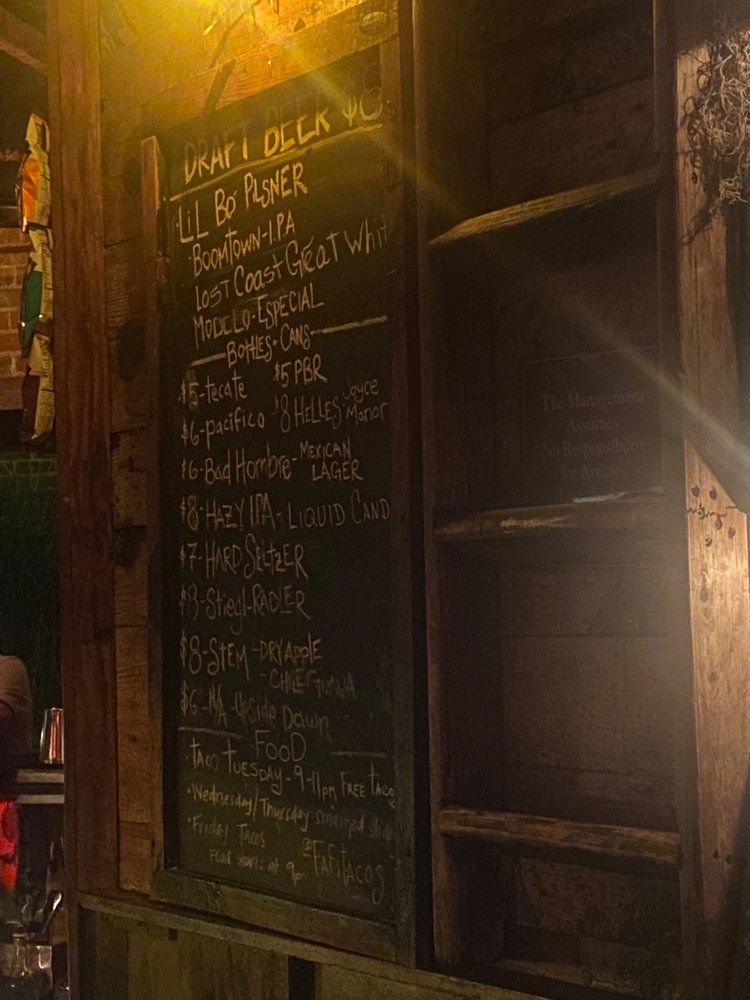 DRAFT BEER
LiL Bo' PILSNER
BOOMTOWN-I.PA
LOST COAST GREAT Whit
MODELO ESPECIAL
BOTTLES CANS
$5-tecate $5 PBR
$6-pacifico $8 HELLES Joyce Manor
$6-Bad Hombre-MEXICAN LAGER
$8-HAZY IPA-LIQUID CAND
$7-HARD SELTZER
$8-Stiegl-RADLER
$8-STEM-DRY APPLE
-CHILE GUAVA
$6-NA-Upside Dawn
FOOD
TACO TUESDAY-9-11pm FREE taco
Wednesday/Thursday smashed
Friday Tacos
Food starts at 9pm @FAFiTACOS
The Management
Assumes
No Responsibility
for Articles